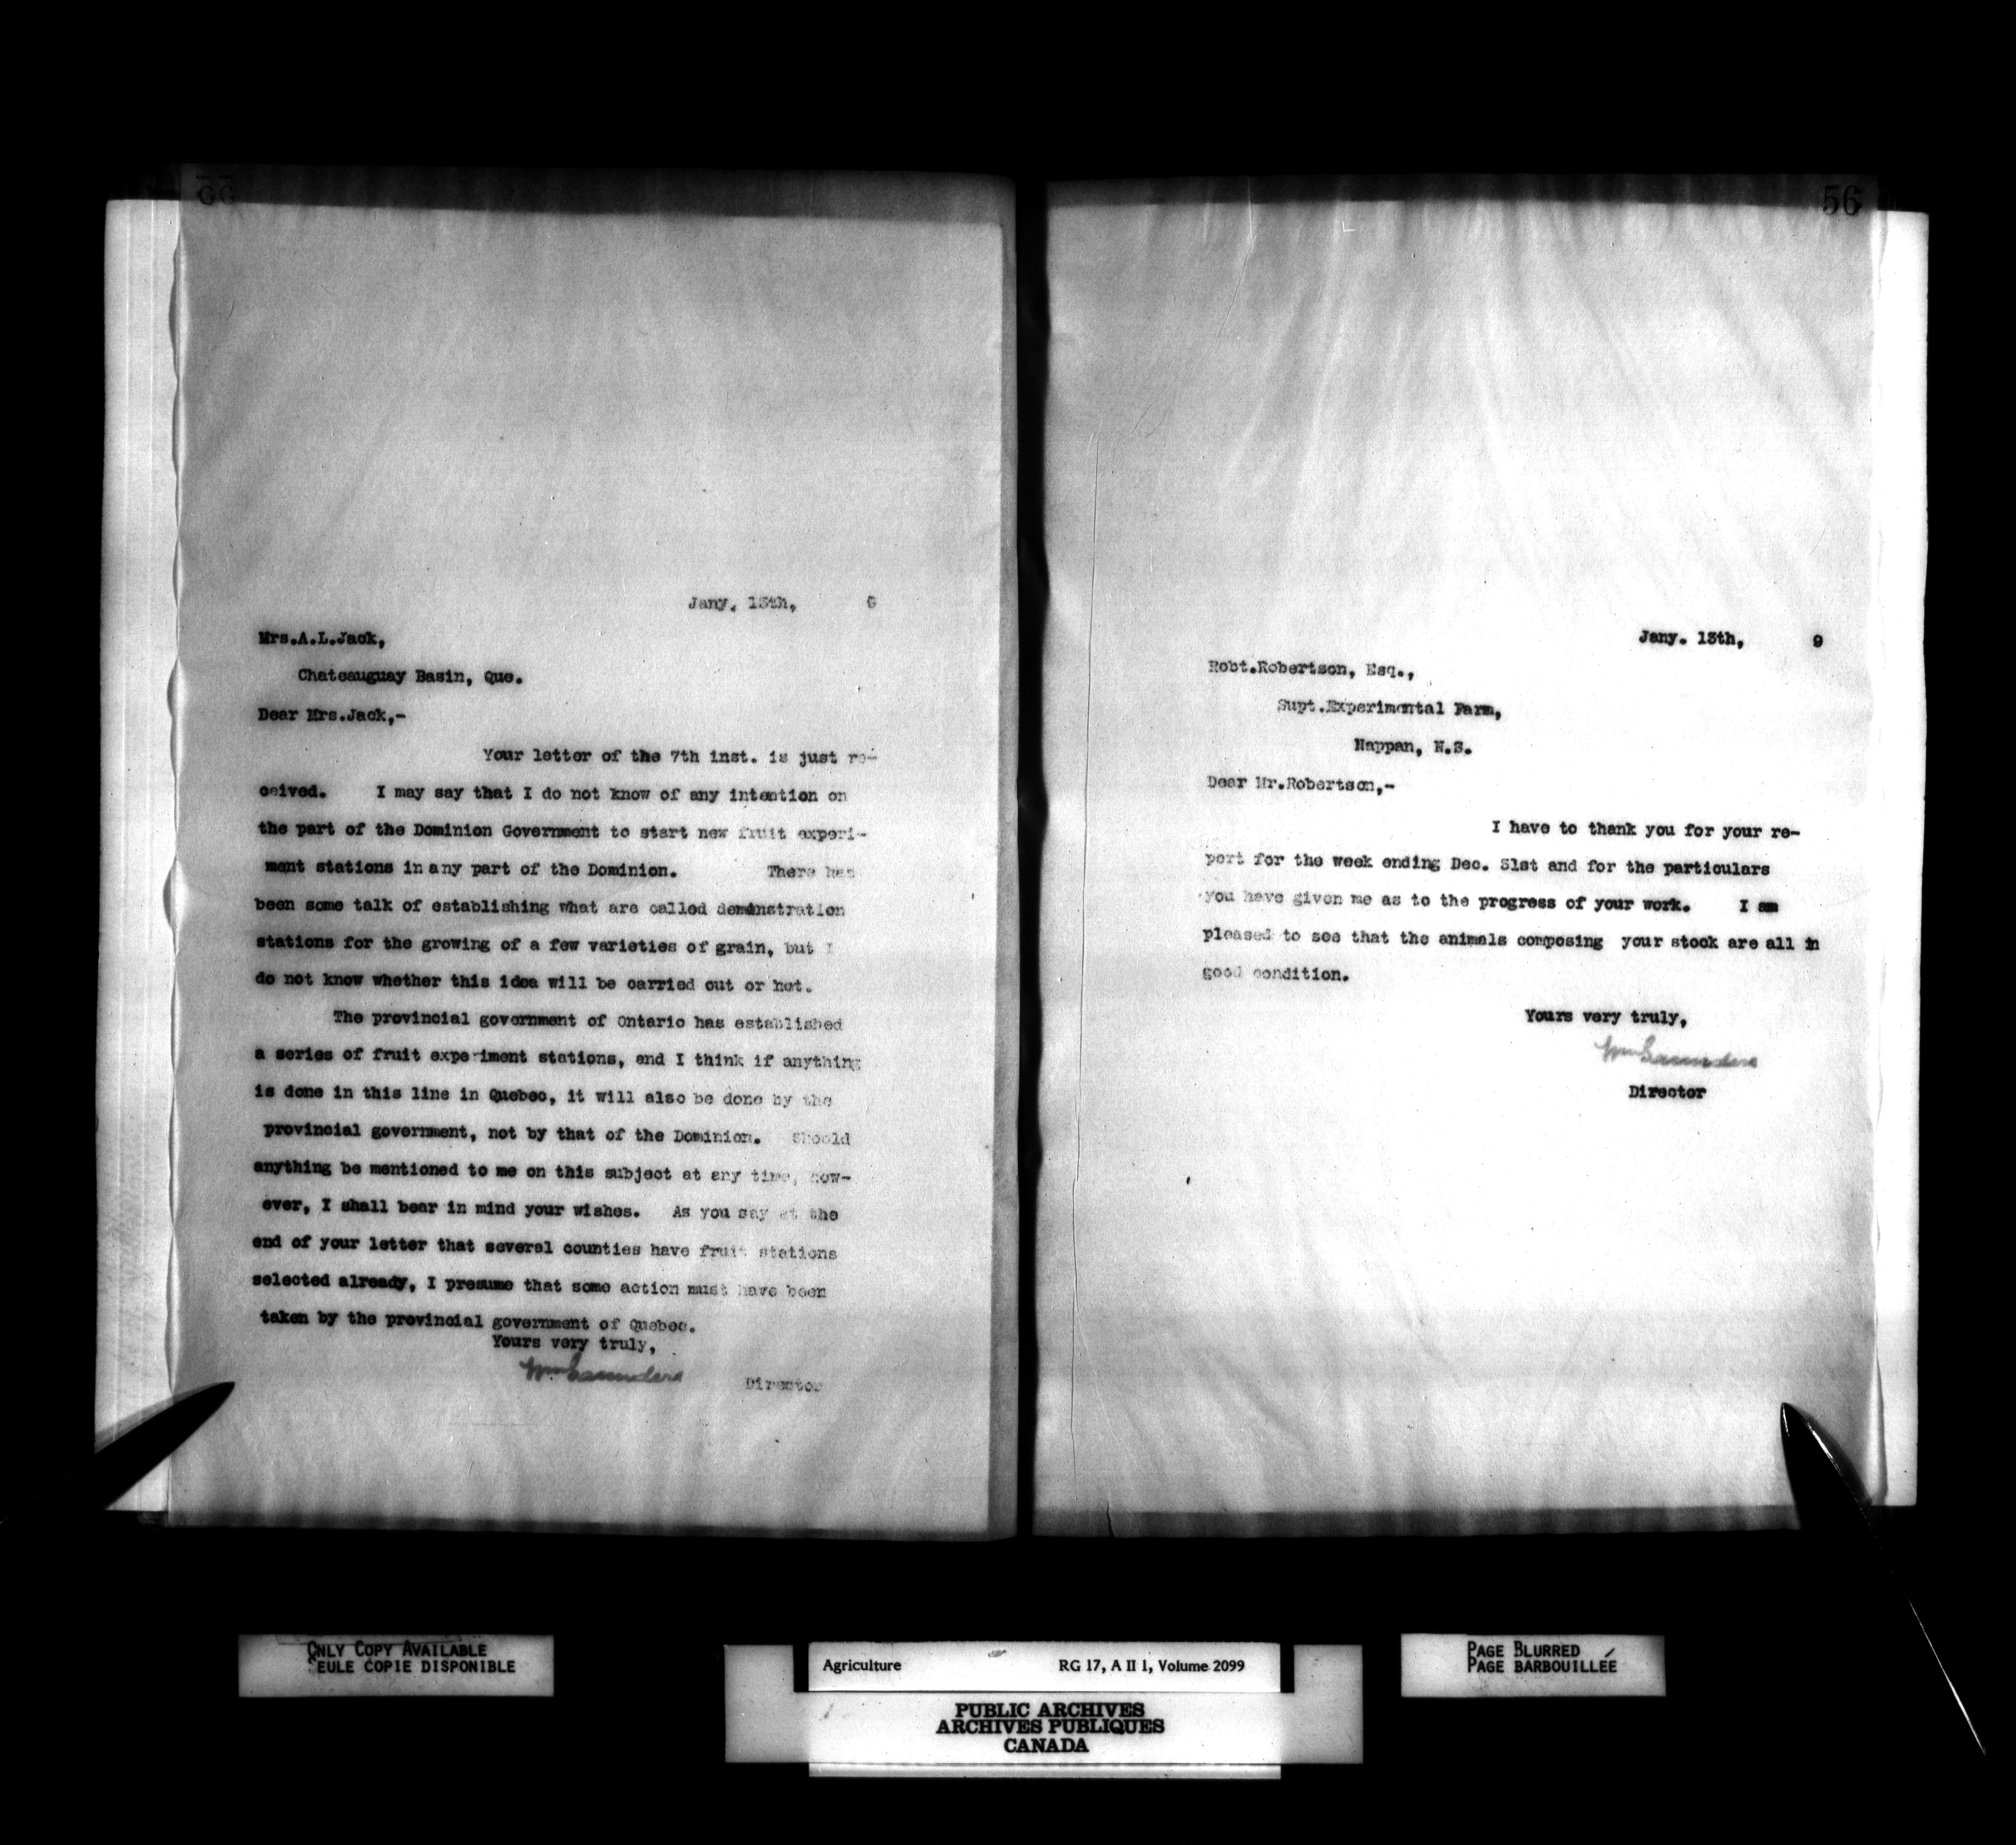 55
Jany. 13th, 9
Mrs.A.L.Jack,
Chateauguay Basin, Que.
Dear Mrs.Jack,-
Your letter of the 7th inst. is just re-
ceived. I may say that I do not know of any intention on
the part of the Dominion Government to start new fruit experi-
ment stations in any part of the Dominion. There has
been some talk of establishing what are called demonstration
stations for the growing of a few varieties of grain, but I
do not know whether this idea will be carried out or not.
The provincial government of Ontario has established
a series of fruit experiment stations, and I think if anything
is done in this line in Quebec, it will also be done by the
provincial government, not by that of the Dominion. Should
anything be mentioned to me on this subject at any time, how-
ever, I shall bear in mind your wishes. As you say at the
end of your letter that several counties have fruit stations
selected already, I presume that some action must have been
taken by the provincial government of Quebec.
Yours very truly,
Wm Saunders
Director
56
Jany. 13th, 9
Robt.Robertson, Esq.,
Supt.Experimental Farm,
Nappan, N.S.
Dear Mr.Robertson,-
I have to thank you for your re-
port for the week ending Dec. 31st and for the particulars
you have given me as to the progress of your work. I am
pleased to see that the animals composing your stock are all in
good condition.
Yours very truly,
Wm Saunders
Director
ONLY COPY AVAILABLE
SEULE COPIE DISPONIBLE
Agriculture RG 17, A II 1, Volume 2099
PUBLIC ARCHIVES
ARCHIVES PUBLIQUES
CANADA
PAGE BLURRED
PAGE BARBOUILLÉE